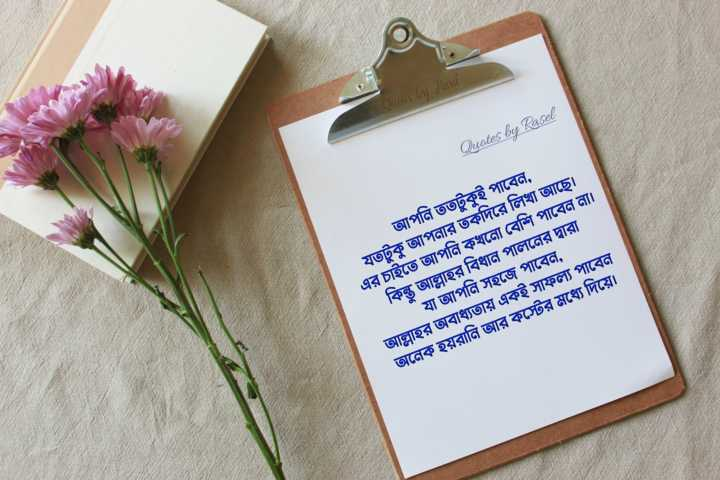 Quotes by Rasel
আপনি ততটুকুই পাবেন,
যতটুকু আপনার তকদিরে লিখা আছে।
এর চাইতে আপনি কখনো বেশি পাবেন না।
কিন্তু আল্লাহর বিধান পালনের দ্বারা
যা আপনি সহজে পাবেন,
আল্লাহর অবাধ্যতায় একই সাফল্য পাবেন
অনেক হয়রানি আর কস্টের মধ্যে দিয়ে।